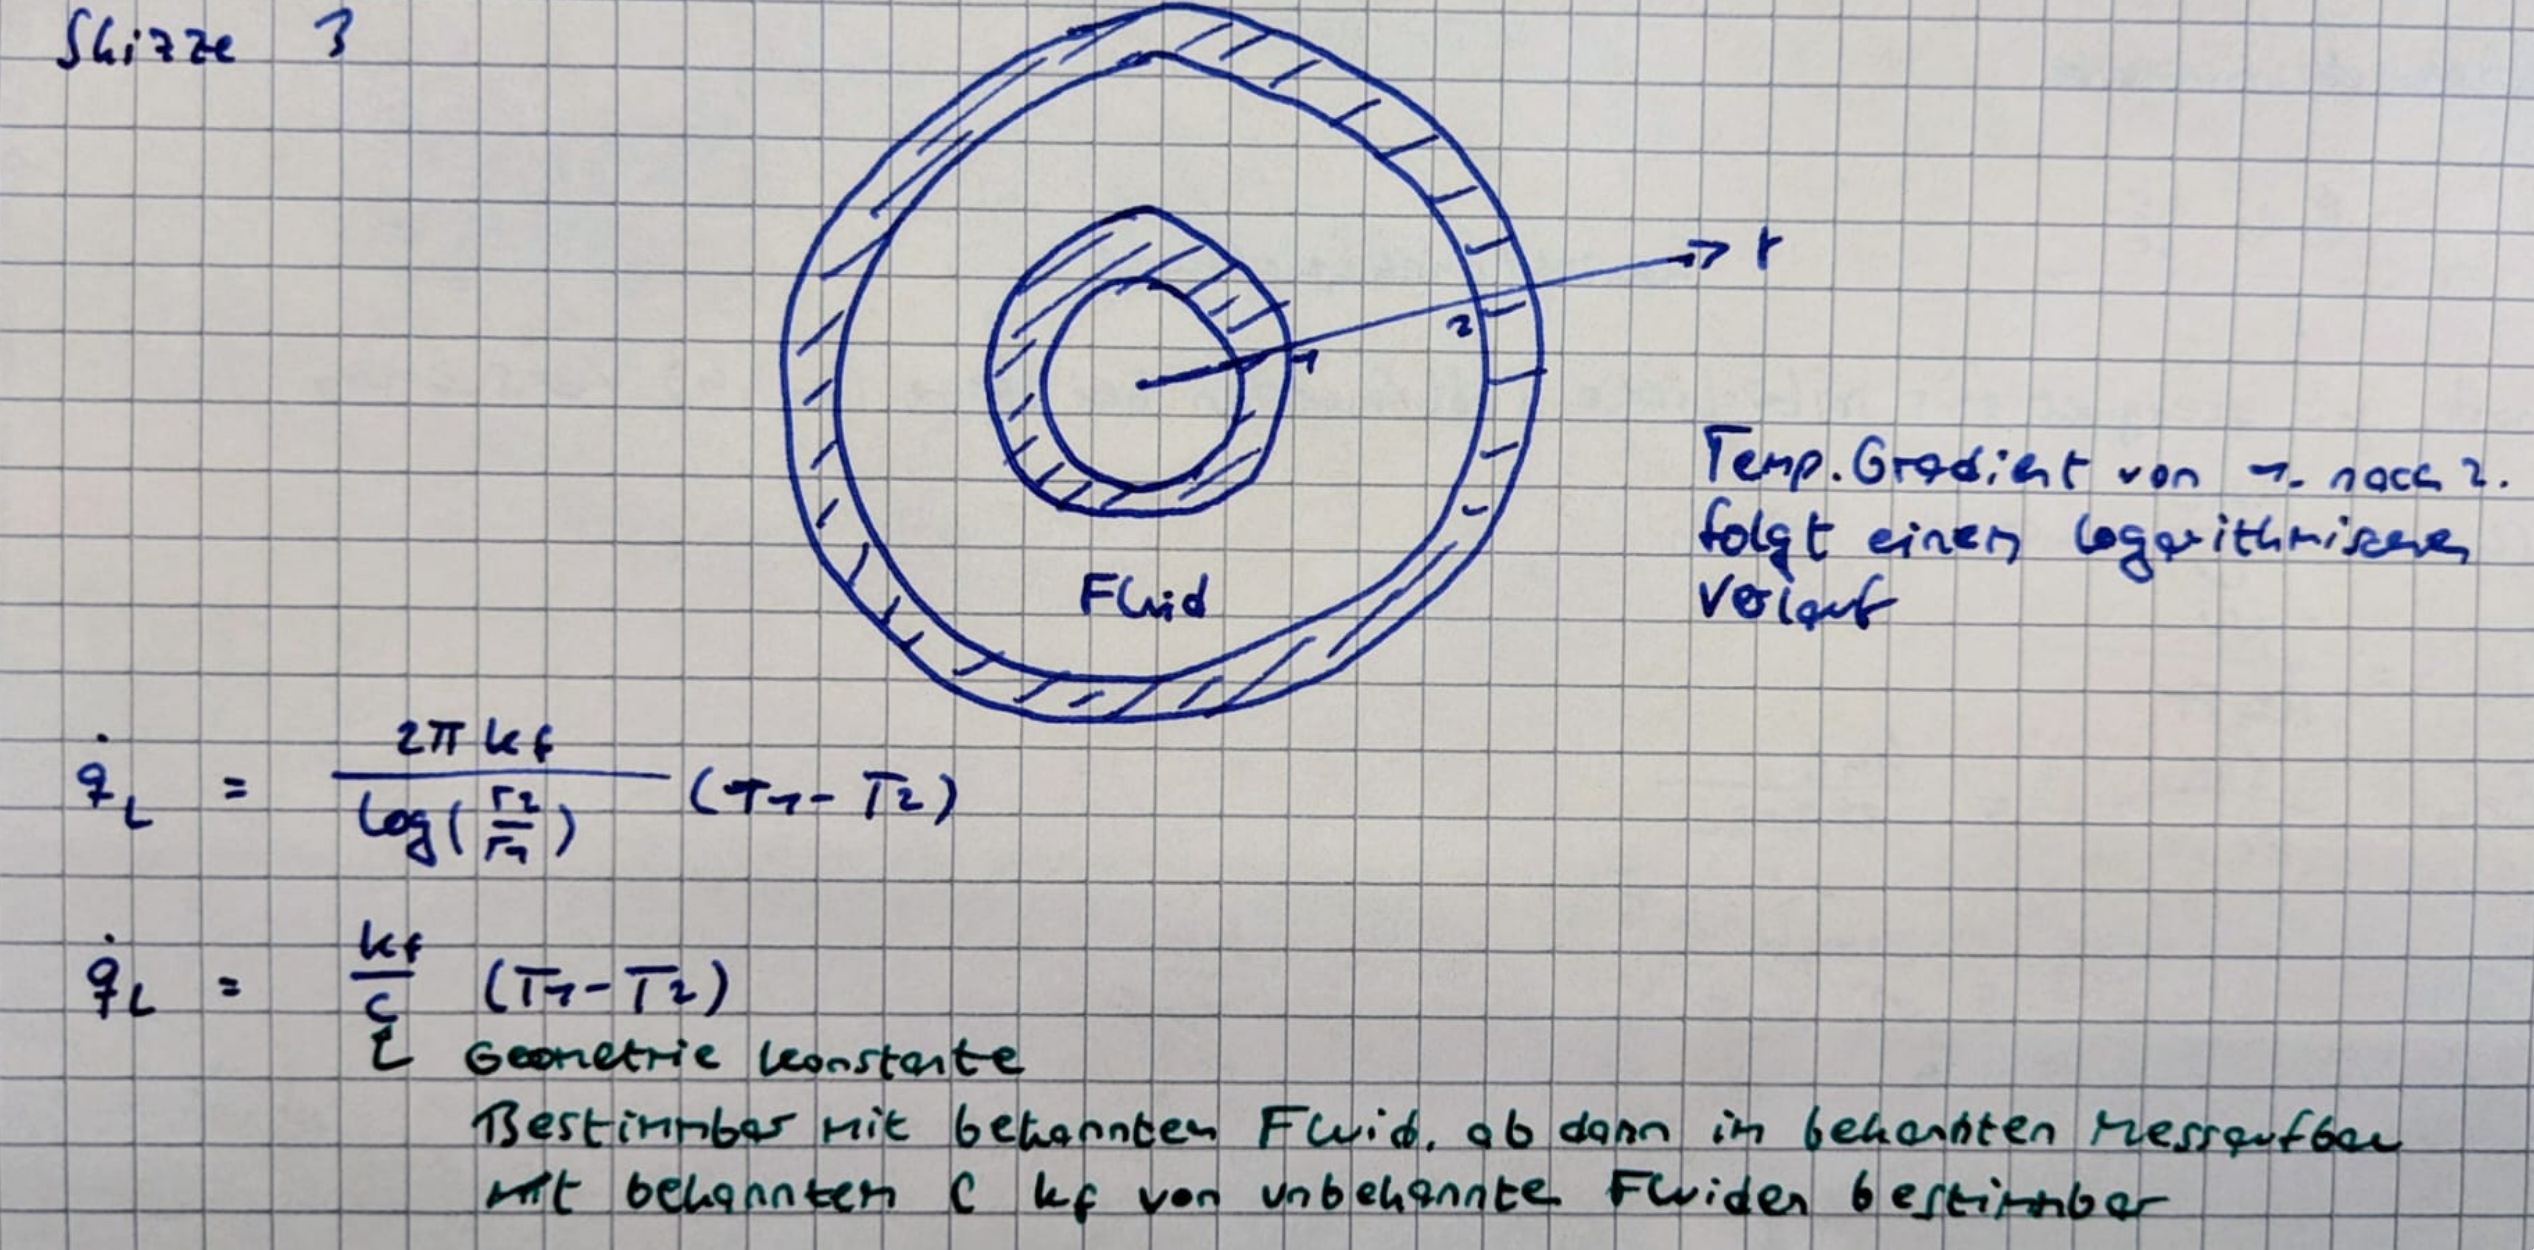 Skizze 3
r
1
2
Temp. Gradient von 1. nach 2.
folgt einem logarithmischen
Verlauf
Fluid
q̇_L = 2π kf / log(r2/r1) (T1 - T2)
q̇_L = kf / C (T1 - T2)
Geometrie konstante
Bestimmbar mit bekannten Fluid. ab dann in bekannten Messaufbau
mit bekannten C kf von unbekannte Fluiden bestimmbar